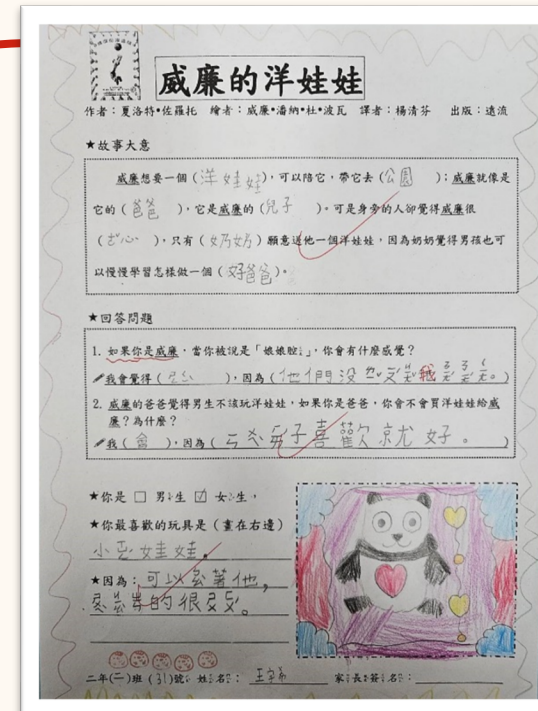 威廉的洋娃娃
作者：夏洛特•佐羅托 繪者：威廉•潘納•杜•波瓦 譯者：楊清芬 出版：遠流
★故事大意
威廉想要一個（洋娃娃），可以陪它，帶它去（公園）；威廉就像是
它的（爸爸），它是威廉的（兒子）。可是身旁的人卻覺得威廉很
（ㄜˇ心），只有（奶奶）願意送他一個洋娃娃，因為奶奶覺得男孩也可
以慢慢學習怎樣做一個（好爸爸）。
★回答問題
1. 如果你是威廉，當你被說是「娘娘腔」，你會有什麼感覺？
我會覺得（），因為（他們沒
2. 威廉的爸爸覺得男生不該玩洋娃娃，如果你是爸爸，你會不會買洋娃娃給威
廉？為什麼？
我（會），因為（子喜歡就好。）
★你是 □ 男生 ☑ 女生，
★你最喜歡的玩具是（畫在右邊）
小 娃娃。
★因為：可以 著他，
的很
二年(二)班 (31)號 姓名： 家長簽名：